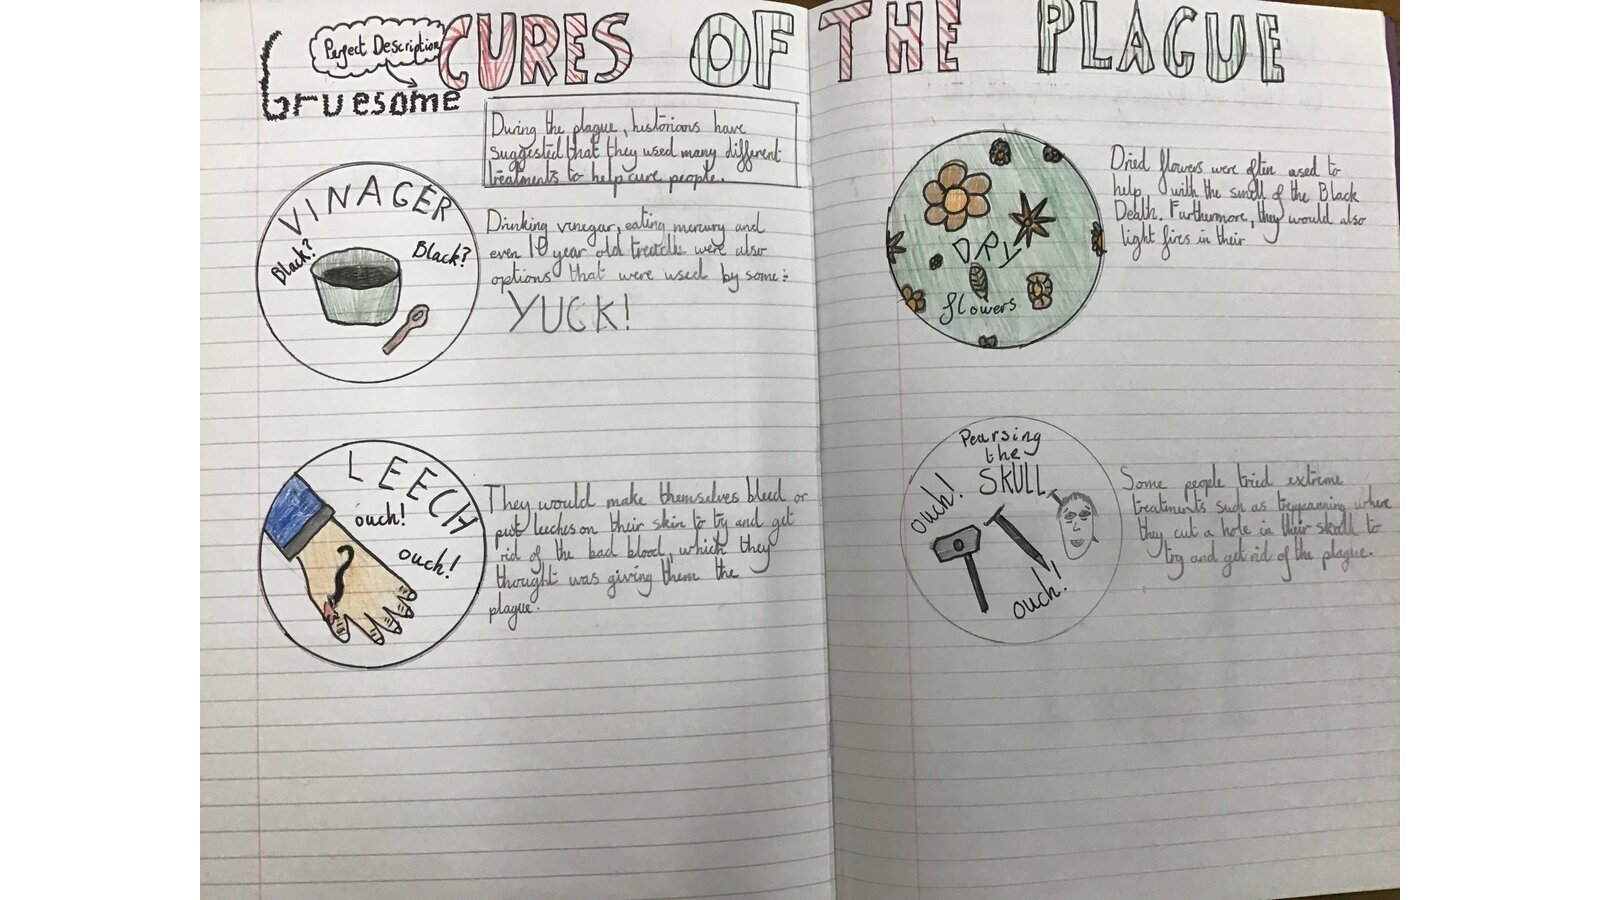 CURES OF THE PLAGUE
Perfect Description
Gruesome
During the plague, historians have
suggested that they used many different
treatments to help cure people.
VINAGER
Black?
Black?
Drinking vinegar, eating mercury and
even 10 year old treacle were also
options that were used by some:-
YUCK!
LEECH
ouch!
ouch!
They would make themselves bleed or
put leeches on their skin to try and get
rid of the bad blood, which they
thought was giving them the
plague.
DRY
flowers
Dried flowers were often used to
help with the smell of the Black
Death. Furthermore, they would also
light fires in their
Pearsing
the
SKULL
ouch!
ouch!
Some people tried extreme
treatments such as treypanning where
they cut a hole in their skull to
try and get rid of the plague.